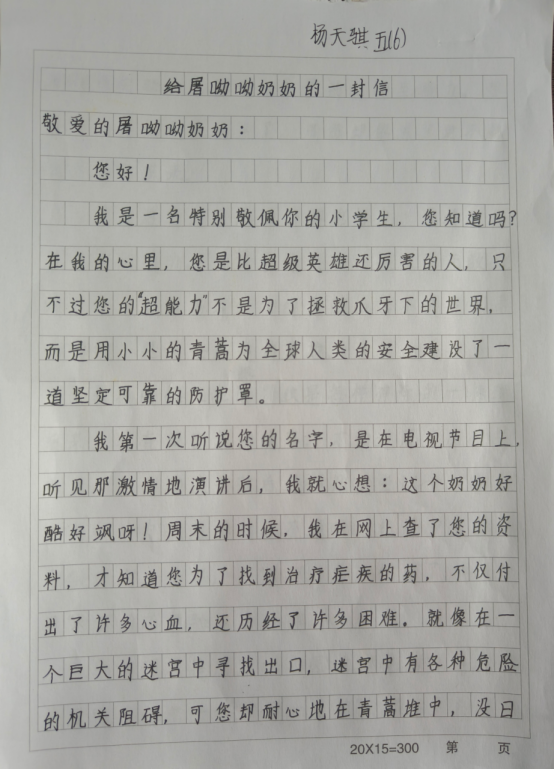 杨天骐五(6)
给屠呦呦奶奶的一封信
敬爱的屠呦呦奶奶：
您好！
我是一名特别敬佩你的小学生，您知道吗？
在我的心里，您是比超级英雄还厉害的人，只
不过您的"超能力"不是为了拯救爪牙下的世界，
而是用小小的青蒿为全球人类的安全建设了一
道坚定可靠的防护罩。
我第一次听说您的名字，是在电视节目上，
听见那激情地演讲后，我就心想：这个奶奶好
酷好飒呀！周末的时候，我在网上查了您的资
料，才知道您为了找到治疗疟疾的药，不仅付
出了许多心血，还历经了许多困难。就像在一
个巨大的迷宫中寻找出口，迷宫中有各种危险
的机关阻碍，可您却耐心地在青蒿堆中，没日
20X15=300 第 页